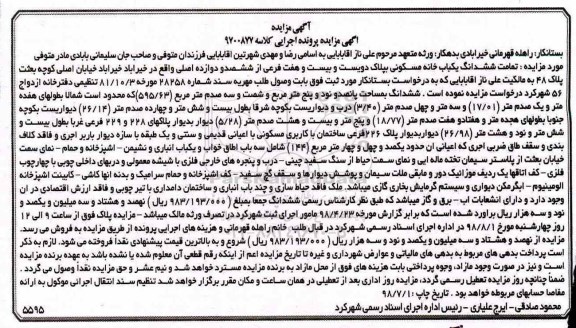 آگهی مزایده
آگهی مزایده پرونده اجرایی کلاسه ۹۷۰۰۸۷۷
بستانکار: راهله قهرمانی خیرابادی بدهکار: ورثه متعهد مرحوم علی ناز اقابابایی به اسامی رضا و مهدی شهرتین اقابابایی فرزندان متوفی و صاحب جان سلیمانی بابادی مادر متوفی
مورد مزایده : تمامت ششدانگ یکباب خانه مسکونی بپلاک دویست و بیست و هفت فرعی از ششصدو دوازده اصلی واقع در خیراباد خیراباد خیابان اصلی کوچه بعثت
پلاک ۴۸ به مالکیت علی ناز اقابابایی که به درخواست بستانکار مورد ثبت فوق بابت وصول طلب مهریه سند شماره ۲۸۲۵۸ مورخه ۸۱/۱۰/۳ تنظیمی دفترخانه ازدواج
۵۶ شهرکرد درخواست مزایده نموده است . ششدانگ بمساحت پانصدو نود و پنج متر مربع و شصت و سه صدم متر مربع (۵۹۵/۶۳)که محدود است شمالا بطولهای هفده
متر و یک صدم متر (۱۷/۰۱) و سه متر و چهل صدم متر (۳/۴۰) درب و دیواریست بکوچه شرقا بطول بیست و شش متر و چهارده صدم متر (۲۶/۱۴) دیواریست بکوچه
جنوبا بطولهای هجده متر و هفتادو هفت صدم متر (۱۸/۷۷) و پنج متر و بیست و هشت صدم متر (۵/۲۸) دیوار بدیوار پلاکهای ۲۲۸ و ۲۲۹ فرعی غربا بطول بیست و
شش متر و نود و هشت متر (۲۶/۹۸) دیواربدیوار پلاک ۲۲۶فرعی ساختمان با کاربری مسکونی با اعیانی قدیمی و سنتی و یک طبقه با سازه دیوار باربر اجری و فاقد کلاف
بندی و سقف طاق ضربی اجری که اعیانی ان حدود یکصد و چهل و چهار متر مربع (۱۴۴) شامل سه باب اطاق خواب و یکباب انباری و نشیمن - اشپزخانه و حمام - نمای سمت
خیابان بعثت از پلاستر سیمان تخته ماله ایی و نمای سمت حیاط از سنگ سفید چینی - درب و پنجره های خارجی فلزی با شیشه معمولی و دربهای داخلی چوبی با چهارچوب
فلزی - کف اتاقها یک ردیف موزائیک دور و مابقی ملات سیمان و پوشش دیوارها و سقف گچ سفید - کف اشپزخانه و حمام سرامیک و بدنه انها کاشی - کابینت اشپزخانه
الومینیوم - ابگرمکن دیواری و سیستم گرمایش بخاری گازی میباشد. ملک فاقد حیاط سازی و چند باب انباری و ساختمان دامداری با تیر چوبی و فاقد ارزش اقتصادی در ان
وجود دارد و دارای انشعابات اب - برق و گاز میباشد که طبق نظر کارشناس رسمی ششدانگ جمعا بمبلغ ( ۹۸۳/۱۹۳/۰۰۰ ریال ) نهصد و هشتاد و سه میلیون و یکصد و
نود و سه هزار ریال براورد شده است که برابر گزارش مورخه ۹۸/۴/۲۳ مامور اجرای ثبت شهرکرد در تصرف ورثه مالک میباشد - مزایده پلاک فوق از ساعت ۹ الی ۱۲
روز چهارشنبه مورخ ۹۸/۸/۱ در اداره اجرای اسناد رسمی شهرکرد در قبال طلب خانم راهله قهرمانی و هزینه های اجرایی پرونده از طریق مزایده به فروش می رسد.
مزایده از نهصد و هشتاد و سه میلیون و یکصد و نود و سه هزار ریال ( ۹۸۳/۱۹۳/۰۰۰ ریال ) شروع و به بالاترین قیمت پیشنهادی نقدآ فروخته می شود. لازم به ذکر
است پرداخت بدهی های مربوط به بدهی های مالیاتی و عوارض شهرداری و غیره تا تاریخ مزایده اعم از اینکه رقم قطعی آن معلوم شده یا نشده باشد به عهده برنده مزایده
است و نیز در صورت وجود مازاد، وجوه پرداختی بابت هزینه های فوق از محل مازاد به برنده مزایده مسترد خواهد شد و نیم عشر و حق مزایده نقدا وصول می گردد .
ضمنا چنانچه روز مزایده تعطیل رسمی گردد، مزایده روز اداری بعد از تعطیلی در همان ساعت و مکان مقرر برگزار خواهد شد تنظیم سند انتقال اجرائی موکول به ارائه
مفاصا حسابهای مربوطه خواهد بود . تاریخ چاپ : ۹۸/۷/۱
محمود صادقی - ایرج علیاری - رئیس اداره اجرای اسناد رسمی شهرکرد
۵۵۹۵